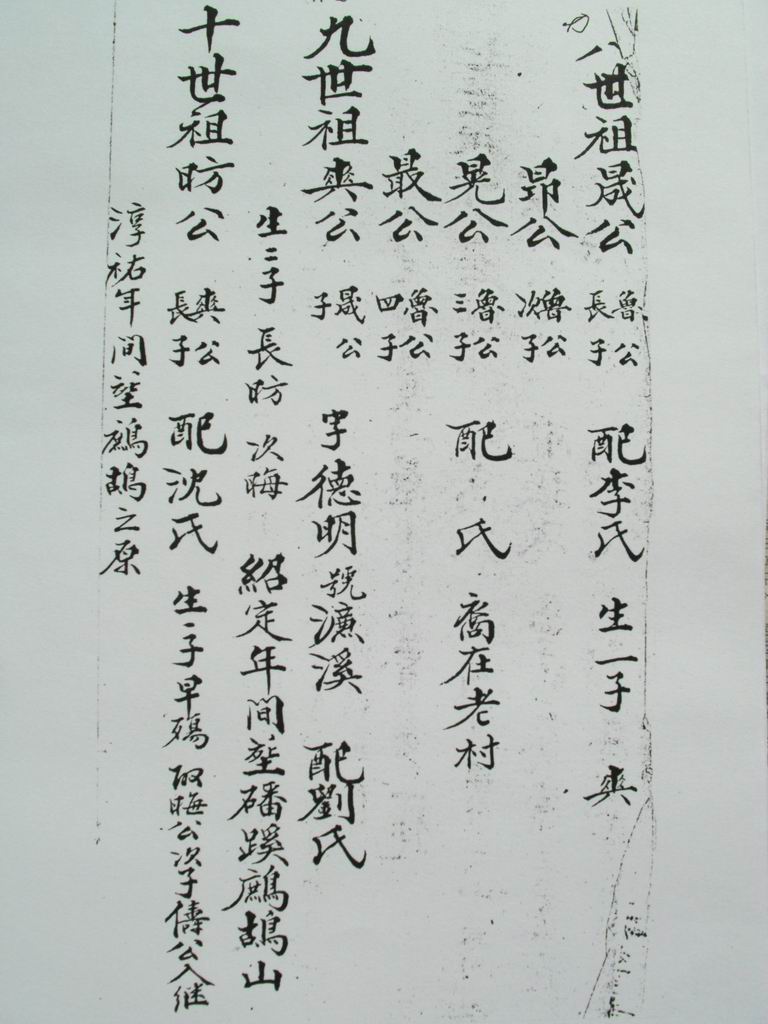 八世祖晟公 魯公長子 配李氏 生一子 奭
昂公 魯公次子
晃公 魯公三子 配 氏 裔在老村
最公 魯公四子
九世祖奭公 晟公子 字德明 號濂溪 配劉氏
生二子 長昉 次晦 紹定年間塟磻蹊鷓鴣山
十世祖昉公 奭公長子 配沈氏 生一子早殤 取晦公次子儔公入继
淳祐年间塟鷓鴣之原